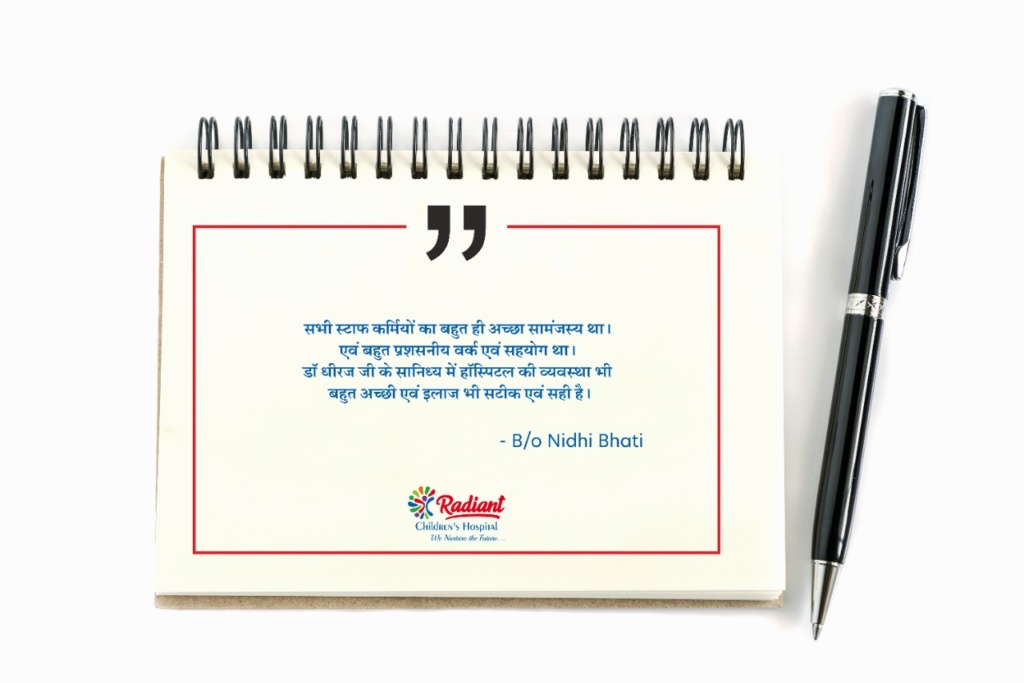 ”
सभी स्टाफ कर्मियों का बहुत ही अच्छा सामंजस्य था।
एवं बहुत प्रशसनीय वर्क एवं सहयोग था।
डॉ धीरज जी के सानिध्य में हॉस्पिटल की व्यवस्था भी
बहुत अच्छी एवं इलाज भी सटीक एवं सही है।
- B/o Nidhi Bhati
Radiant
Children's Hospital
We Nurture the Future....